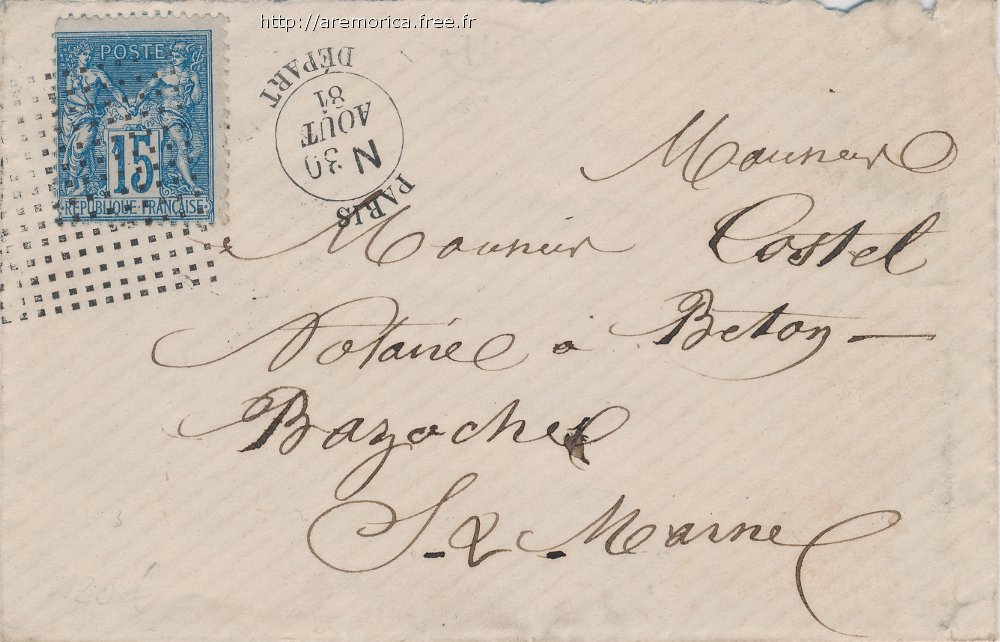 http://aremorica.free.fr
POSTE
15
RÉPUBLIQUE FRANÇAISE
PARIS
N 30
AOUT
81
DÉPART
Monsieur
Monsieur Costel
Notaire à Beton
Bazoches
S & Marne